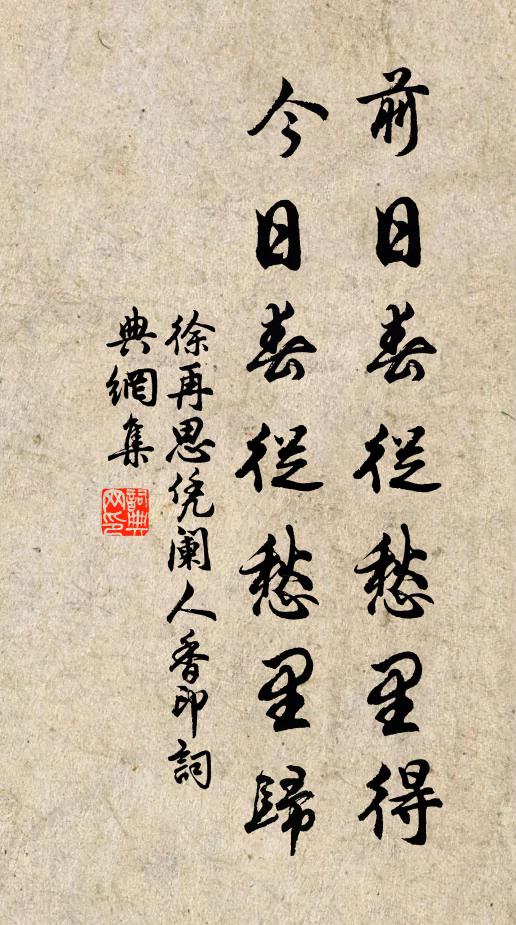 前日春從愁里得
今日春從愁里歸
徐再思凭闌人香印詞
典網集
詞典
网印